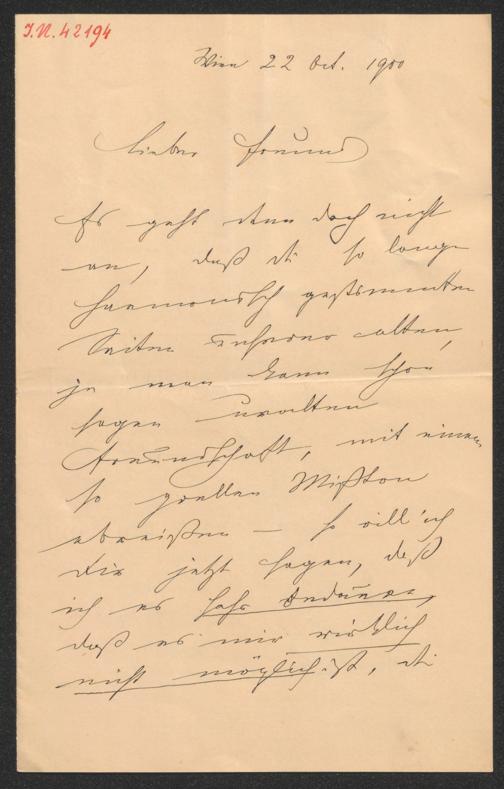 J.N. 42194
Wien 22 Oct. 1900
Lieber Freund
Es geht denn doch nicht
an, daß die so lange
harmonisch gestimmten
Seiten unserer alten,
ja man kann schon
sagen uralten
Freundschaft, mit einem
so grellen Mißton
abreißen – so will ich
Dir jetzt sagen, daß
ich es sehr bedaure,
daß es mir wirklich
nicht möglich ist, die